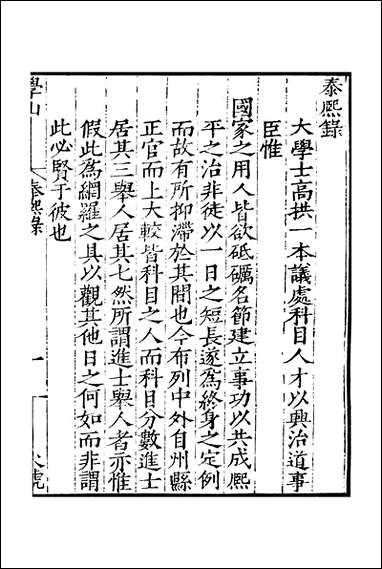 泰熙錄
大學士高拱一本議處科目人才以興治道事
臣惟
國家之用人皆欲砥礪名節建立事功以共成熙
平之治非徒以一日之短長遂為終身之定例
而故有所抑滯於其間也今布列中外自州縣
正官而上大較皆科目之人而科目分數進士
居其三舉人居其七然所謂進士舉人者亦惟
假此為網羅之具以觀其他日之何如而非謂
此必賢于彼也
學山
泰熙錄
一
號